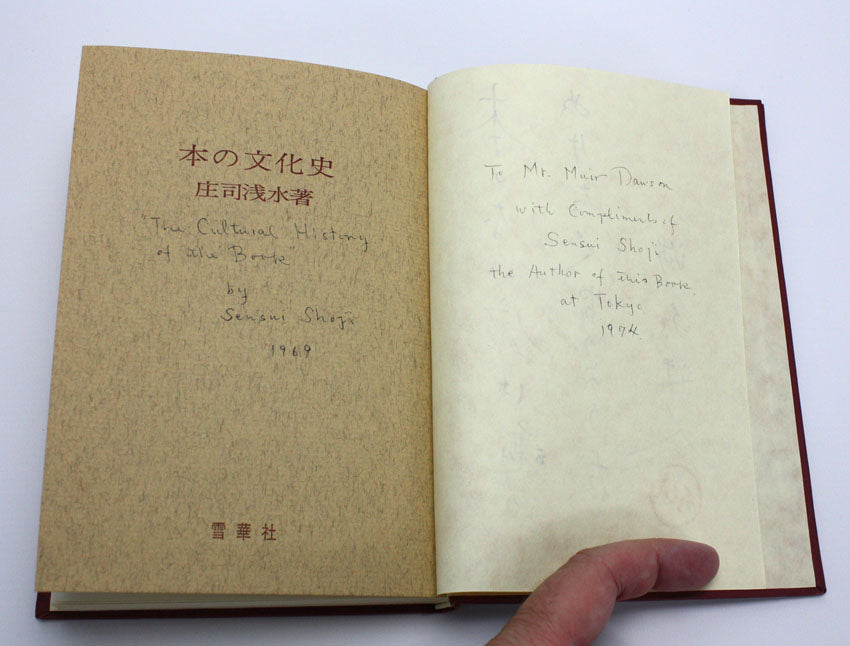 本の文化史
庄司浅水著
"The Cultural History
of the Book"
by
Sensui Shoji
1969
雪華社
To Mr. Muir Dawson
with Compliments of
Sensui Shoji
the Author of this Book.
at Tokyo
1974